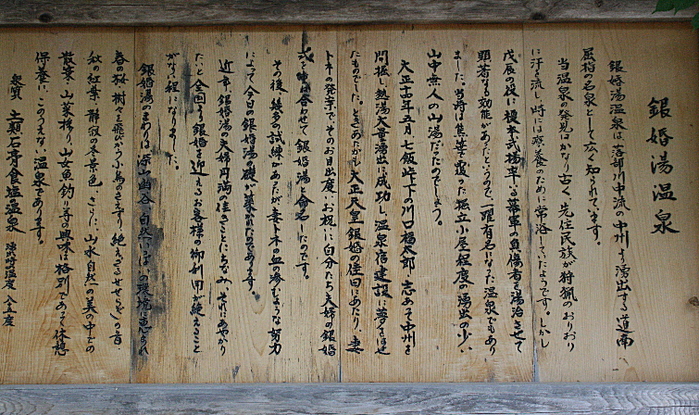 銀婚湯温泉
銀婚湯温泉は、落部川中流の中州より湧出する道南
屈指の名泉として広く知られています。
当温泉の発見はかなり古く、先住民族が狩猟のおりおり
に汗を流し、時には療養のために常浴していたようです。しかし
戊辰の役に榎本武揚率いる幕軍の負傷者を湯治させて
顕著なる効能があったというので一躍有名になった温泉でもあり
ました。当時は熊笹で覆った掘立小屋程度の湧出の少い
山中無人の山湯だったのでしょう。
大正十四年五月七飯峠下の川口福太郎、志あって中州を
問掘し、熱湯大量湧出に成功し、温泉宿建設に夢をはせ
たものでした。ときあたかも大正天皇銀婚の佳日にあたり、妻
トネの発案で、そのお目出度いお祝いに自分たち夫婦の銀婚
式を 合させて銀婚湯と命名したのです。
その後、幾多の試練があったが妻トネの血の滲むような努力
によって今日の銀婚湯の礎が築かれたのであります。
近年、銀婚湯の夫婦円満の生きことにちなみ、それにあやかり
たいと全国より銀婚を迎えるお客様の御利用が絶えること
がなく程になりました。
銀婚湯のまわりは深山幽谷、自然いっぱいの環境に恵まれ
春の桜、樹々を飛びかう小鳥のさえずり、絶えざるせせらぎの音、
秋の紅葉、静寂の冬景色、さらに、山水自然の美の中での
散策、山菜採り、山女魚釣り等の興味は格別であって休憩
保養に、このうえない温泉であります。
泉質 土類石膏食塩の温泉 湧出時の温度 八五度